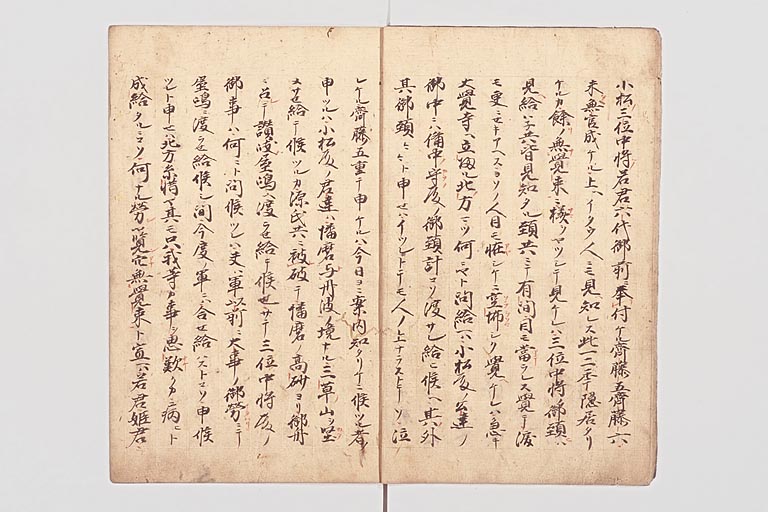 小松三位中将若君六代御前ニ奉付ケル齊藤五齊藤六
末無官成ケル上ハイタク人ニモ見知レス此一二年ハ隠居タリ
ケルカ餘ノ無覚束ニ様ヲヤツシテ見ケレハ三位中将御頭ハ
見給ハネ共皆見知タル頭共ニテ有間目モ當ラレス覚テ涙
モ更ニセキアヘスヨソノ人目モ怪シケニ空怖シク覚ケレハ急キ
大覚寺ヘ立帰ル北方ニモ何ニヤト問給ヘハ小松殿ノ公達ノ
御中ニハ備中守殿ノ御頭計コソ渡サレ給ヒ候ヘ其外
其御頭々々ト申セハイツレトテモ人ノ上ナラストテソ泣
レケル齊藤五重テ申ケルハ今日ヨニ案内知タリケニ候ツル者
申ツルハ小松殿ノ君達ハ播磨与丹波ノ境ナル三草山ヲ堅
メサセ給テ候ツルカ源氏共ニ被破テ播磨ノ高砂ヨリ御舟
ニ召テ讃岐屋嶋ヘ渡ラセ給テ候也サテ三位中将殿ノ
御事ハ何ニト問候ツレハ夫ハ軍以前ニ大事ノ御勞ニテ
屋嶋ヘ渡ラセ給候シ間今度ノ軍ニハ合セ給ハストコソ申候
ツレト申セハ北方糸惜ヤ其モ只我等カ事ヲ思歎ノカ病ト
成給タルニコソ何ナル勞ソ覧穴無覚束ト宣ヘハ若君姫君モ